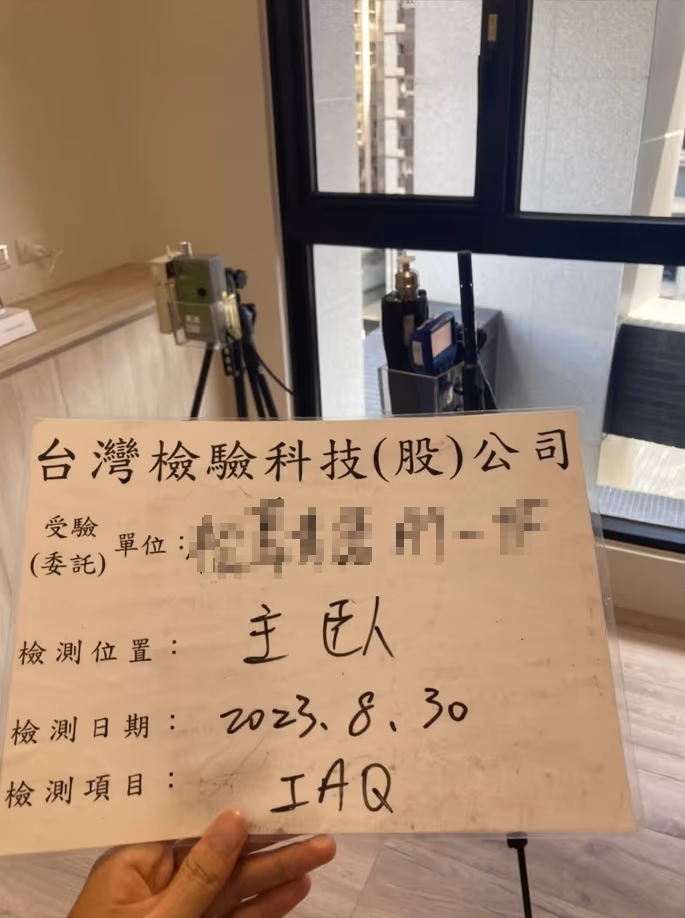 台灣檢驗科技(股)公司
受驗
(委託)
單位:
檢測位置: 主臥
檢測日期: 2023.8.30
檢測項目: IAQ